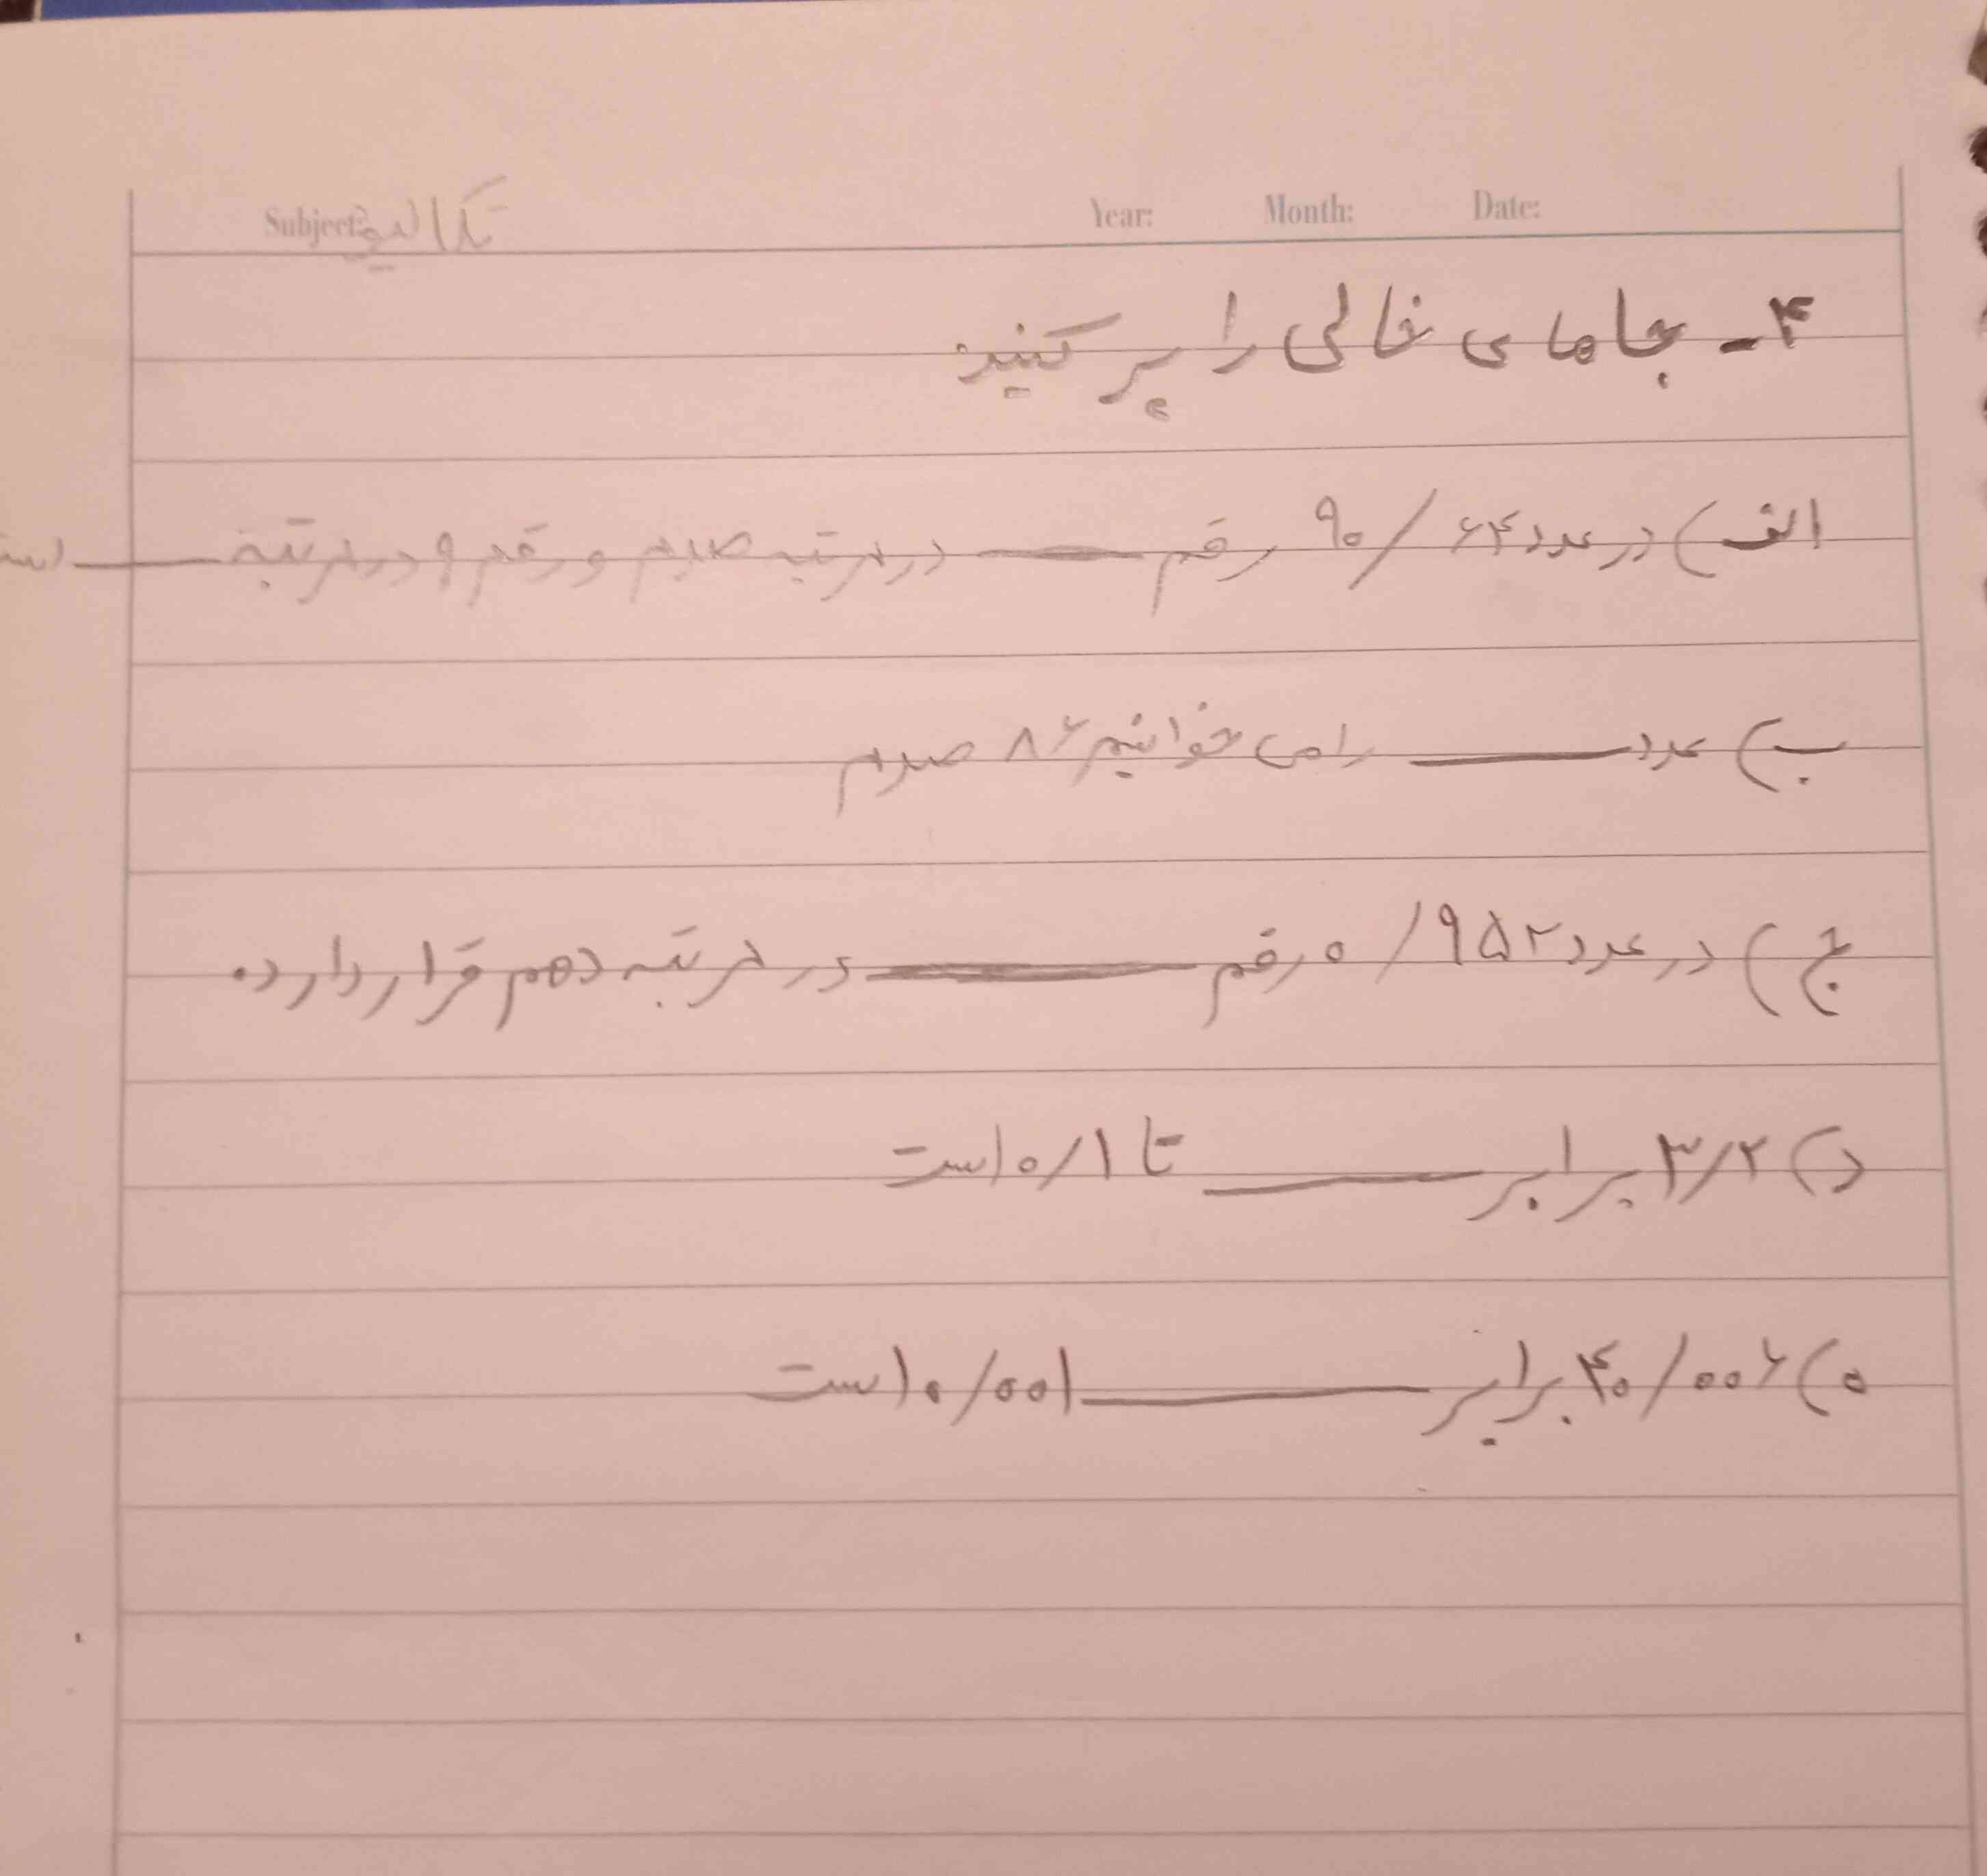 Subject: تکالیف Year: Month: Date:
۴- جاهای خالی را پر کنید.
الف) در عدد ۹۰/۶۴ رقم ــــــ در مرتبه صدم و رقم ۹ در مرتبه ــــــ است
ب) عدد ــــــ را می خوانیم ۸۶ صدم
ج) در عدد ۰/۹۵۲ رقم ــــــ در مرتبه دهم قرار دارد.
د) ۳/۲ برابر ــــــ تا ۰/۱ است
ه) ۴۰/۰۰۶ برابر ــــــ ۰/۰۰۱ است